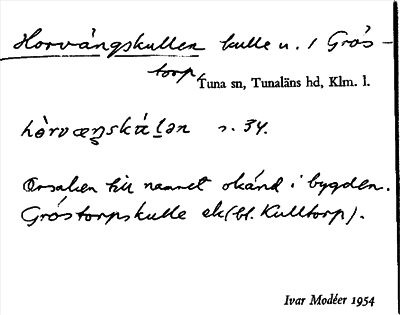 Horvängskullen kulle n. / Grös-
torp,
Tuna sn, Tunaläns hd, Klm. l.
hòrvæŋskálən s. 34.
Orsaken till namnet okänd i bygden.
Gröstorpskulle ek (bl. Kulltorp).
Ivar Modéer 1954